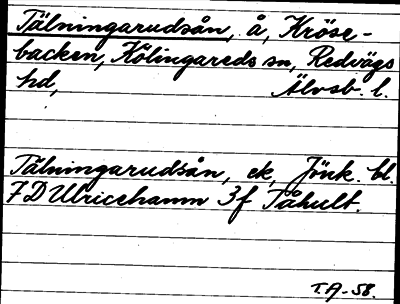 Tälningarudsån, å, Kröse-
backen, Kölingareds sn, Redvägs
hd, Älvsb. l.
Tälningarudsån, ek, Jönk. bl.
7D Ulricehamn 3f Tåhult.
T.A-58.